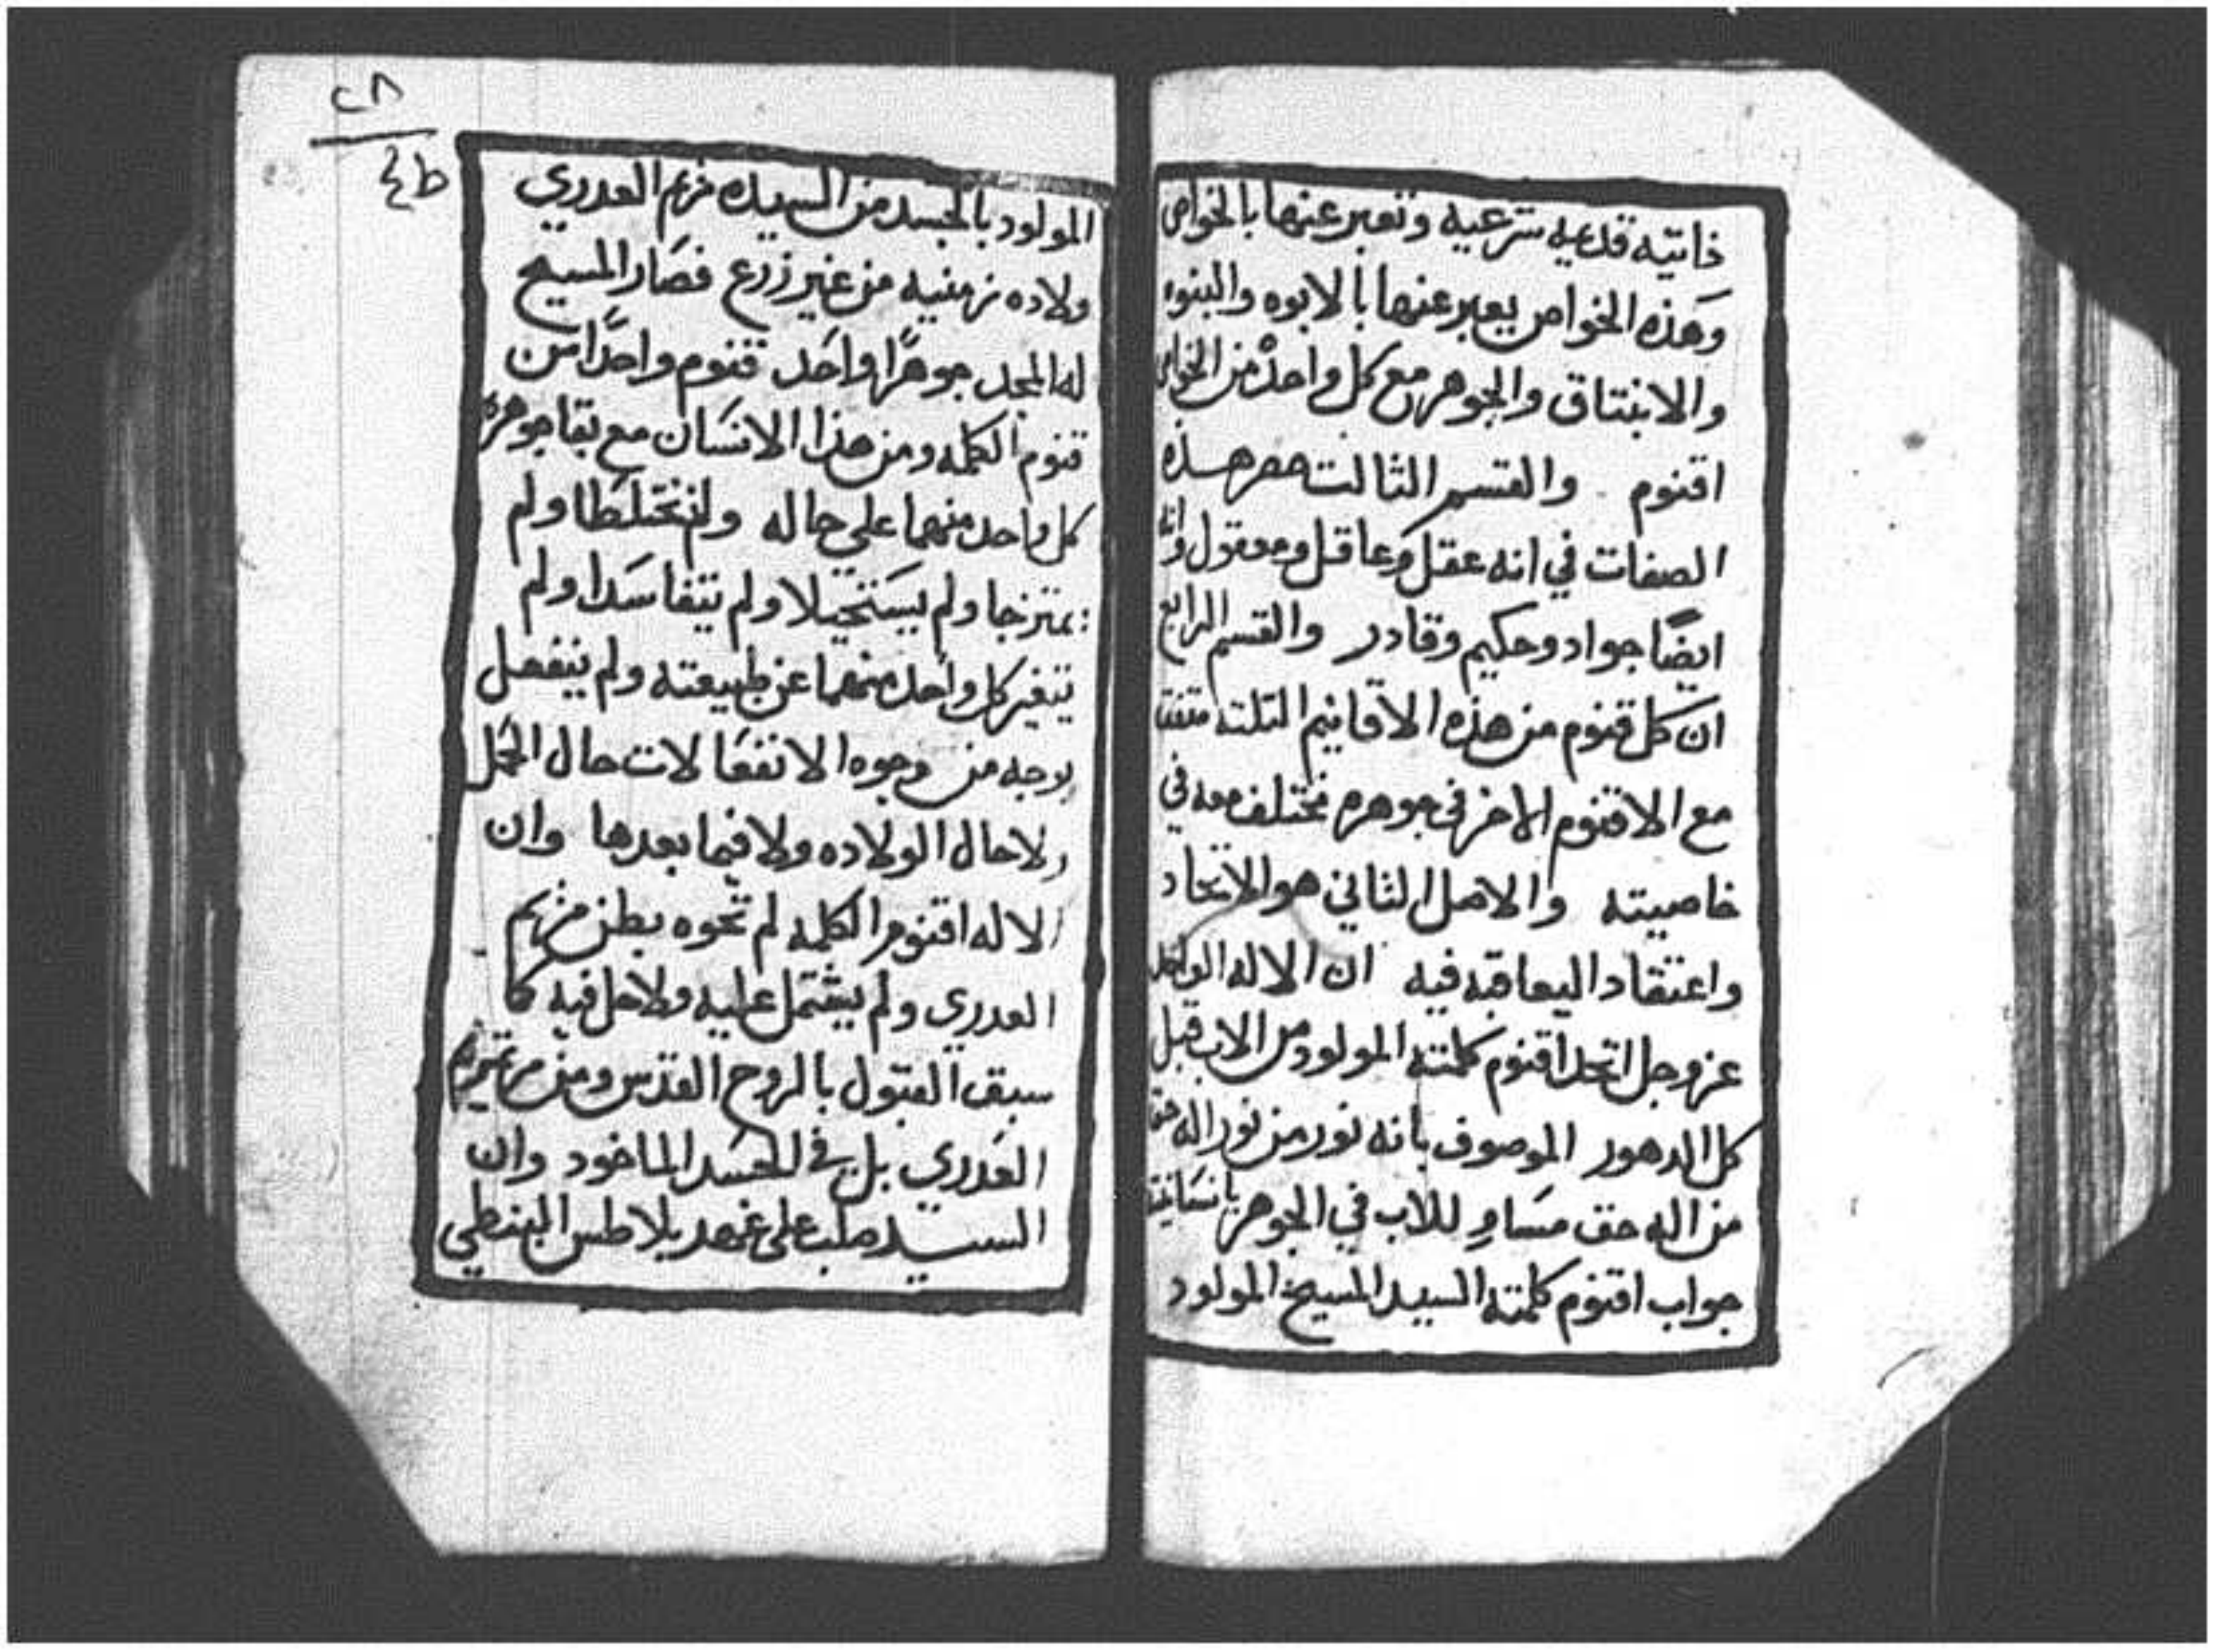 ذاتيه قدميه شرعيه ونعبر عنها بالخواص
وهذه الخواص يعبر عنها بالابوه والبنوه
والانبتاق والجوهر مع كل واحد من الخواص
اقنوم والقسم الثالت حصر هذه
الصفات في انه عقل وعاقل ومعقول وانه
ايضًا جواد وحكيم وقادر والقسم الرابع
ان كل قنوم من هذه الاقانيم التلته متفقا
مع الاقنوم الاخر في جوهره مختلف معه في
خاصيته والاصل الثاني هو الاتحاد
واعتقاد اليعاقبه فيه ان الاله الواحد
عز وجل اتحد اقنوم كلمته المولود من الاب قبل
كل الدهور الموصوف بانه نور من نور اله حق
من اله حق مساوٍ للاب في الجوهر
جواب اقنوم كلمته السيد المسيح المولود
٢٨
المولود بالجسد من السيده مريم العدري
ولاده زمنيه من غير زرع فصار المسيح
له المجد جوهرًا واحد قنوم واحدًا من
قنوم الكلمه ومن هذا الانسان مع بقا جوهر
كل واحد منهما علي حاله ولم يختلطا ولم
يمتزجا ولم يستحيلا ولم يتفاسدا ولم
يتغير كل واحد منهما عن طبيعته ولم ينفصل
بوجه من وجوه الانفعالات حال الحمل
ولا حال الولاده ولا فيما بعدها وان
الاله اقنوم الكلمه لم تحوه بطن مريم
العدري ولم يشتمل عليه ولا حل فيه كما
سبق القبول بالروح القدس ومن مرتمريم
العدري بل في الجسد الماخود وان
السيد صلب علي عهد بيلاطس البنطي